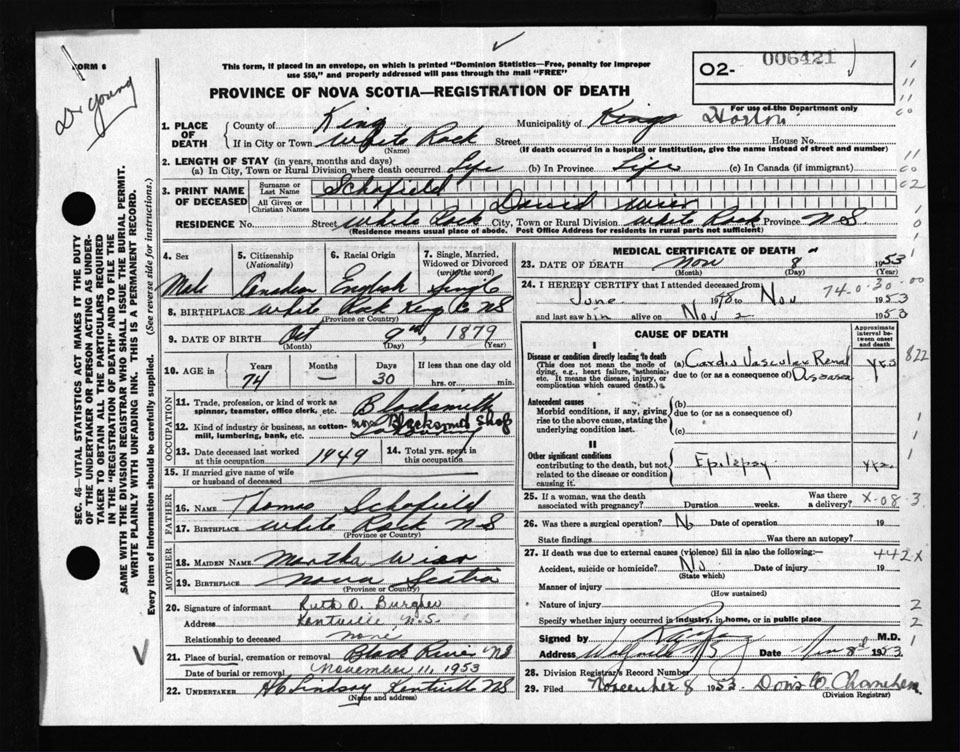 FORM 6
Dr Young
This form, if placed in an envelope, on which is printed "Dominion Statistics—Free, penalty for improper
use $50," and properly addressed will pass through the mail "FREE"
PROVINCE OF NOVA SCOTIA—REGISTRATION OF DEATH
02- 006421
For use of the Department only
1. PLACE OF DEATH { County of Kings Municipality of Kings Horton
If in City or Town White Rock Street House No.
(Name) (If death occurred in a hospital or institution, give the name instead of street and number)
2. LENGTH OF STAY (in years, months and days)
(a) In City, Town or Rural Division where death occurred Life (b) In Province Life (c) In Canada (if immigrant)
3. PRINT NAME OF DECEASED { Surname or Last Name Schofield
All Given or Christian Names David Weir
RESIDENCE No. Street White Rock City, Town or Rural Division White Rock Province N S
(Residence means usual place of abode. Post Office Address for residents in rural parts not sufficient)
4. Sex Male
5. Citizenship (Nationality) Canadian
6. Racial Origin English
7. Single, Married, Widowed or Divorced (write the word) Single
8. BIRTHPLACE White Rock Kings C NS
(Province or Country)
9. DATE OF BIRTH Oct 9 1879
(Month) (Day) (Year)
10. AGE in Years 74 Months — Days 30 If less than one day old hrs. or min.
OCCUPATION
11. Trade, profession, or kind of work as spinner, teamster, office clerk, etc. Blacksmith
12. Kind of industry or business, as cotton-mill, lumbering, bank, etc. Blacksmith Shop
13. Date deceased last worked at this occupation 1949
14. Total yrs. spent in this occupation
15. If married give name of wife or husband of deceased
FATHER
16. NAME Thomas Schofield
17. BIRTHPLACE White Rock N S
(Province or Country)
MOTHER
18. MAIDEN NAME Martha Wier
19. BIRTHPLACE Nova Scotia
(Province or Country)
20. Signature of informant Ruth O. Burgher
Address Kentville, N.S.
Relationship to deceased none
21. Place of burial, cremation or removal Black River NS
Date of burial or removal November 11, 1953
22. UNDERTAKER H C Lindsay Kentville NS
(Name and address)
MEDICAL CERTIFICATE OF DEATH
23. DATE OF DEATH Nov 8 1953
(Month) (Day) (Year)
24. I HEREBY CERTIFY that I attended deceased from 74-0-30-00
June to Nov 1953
and last saw him alive on Nov 2 1953
CAUSE OF DEATH
Approximate interval between onset and death
I
Disease or condition directly leading to death (a) Cardio Vascular Renal yrs 822
(This does not mean the mode of dying, e.g., heart failure, "asthenia," etc. It means the disease, injury, or complication which caused death.)
due to (or as a consequence of) Disease
Antecedent causes (b)
Morbid conditions, if any, giving rise to the above cause, stating the underlying condition last.
due to (or as a consequence of)
(c)
II
Other significant conditions Epilepsy yrs.
contributing to the death, but not related to the disease or condition causing it.
25. If a woman, was the death associated with pregnancy? Duration weeks. Was there a delivery? X-08-3
26. Was there a surgical operation? No Date of operation 19
State findings Was there an autopsy?
27. If death was due to external causes (violence) fill in also the following:— 442X
Accident, suicide or homicide? No Date of injury 19
(State which)
Manner of injury
(How sustained)
Nature of injury
Specify whether injury occurred in industry, in home, or in public place
Signed by M.D.
Address Wolfville NS Date Nov 8 1953
28. Division Registrar's Record Number
29. Filed November 8 1953
(Division Registrar)
SEC. 46—VITAL STATISTICS ACT MAKES IT THE DUTY
OF THE UNDERTAKER OR PERSON ACTING AS UNDER-
TAKER TO OBTAIN ALL THE PARTICULARS REQUIRED
IN THE "REGISTRATION OF DEATH" AND TO FILE THE
SAME WITH THE DIVISION REGISTRAR WHO SHALL ISSUE THE BURIAL PERMIT.
WRITE PLAINLY WITH UNFADING INK. THIS IS A PERMANENT RECORD.
Every item of information should be carefully supplied. (See reverse side for instructions.)